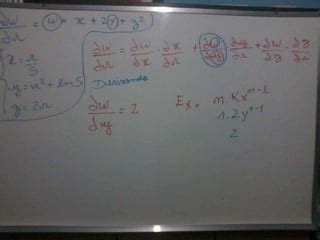 ∂w/∂r = w = x + 2y + z²
x = r/s
y = r² + ln s
z = 2r
∂w/∂r = ∂w/∂x · ∂x/∂r + ∂w/∂y ∂y/∂r + ∂w/∂z · ∂z/∂r
Derivando
∂w/∂y = 2
Ex = n.Kx^(n-1)
1.2y^(1-1)
2